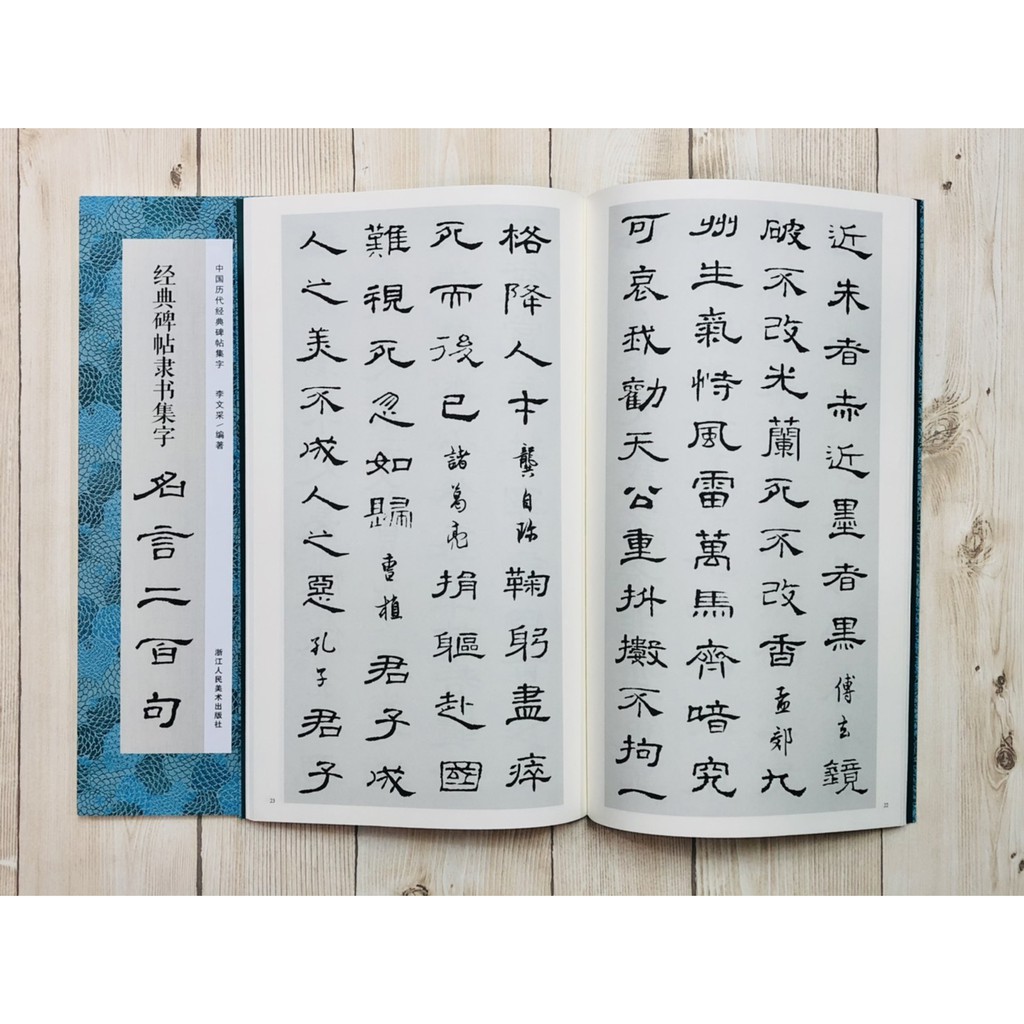 中国历代经典碑帖集字 李文采/编著 浙江人民美术出版社
经典碑帖隶书集字 名言二百句
近朱者赤近墨者黑 傅玄 鏡
破不改光蘭死不改香 孟郊 九
州生氣恃風雷萬馬齊喑究
可哀我勸天公重抖擻不拘一
22
格降人才 龔自珍 鞠躬盡瘁
死而後已 諸葛亮 捐軀赴國
難視死忽如歸 曹植 君子成
人之美不成人之惡 孔子 君子
23